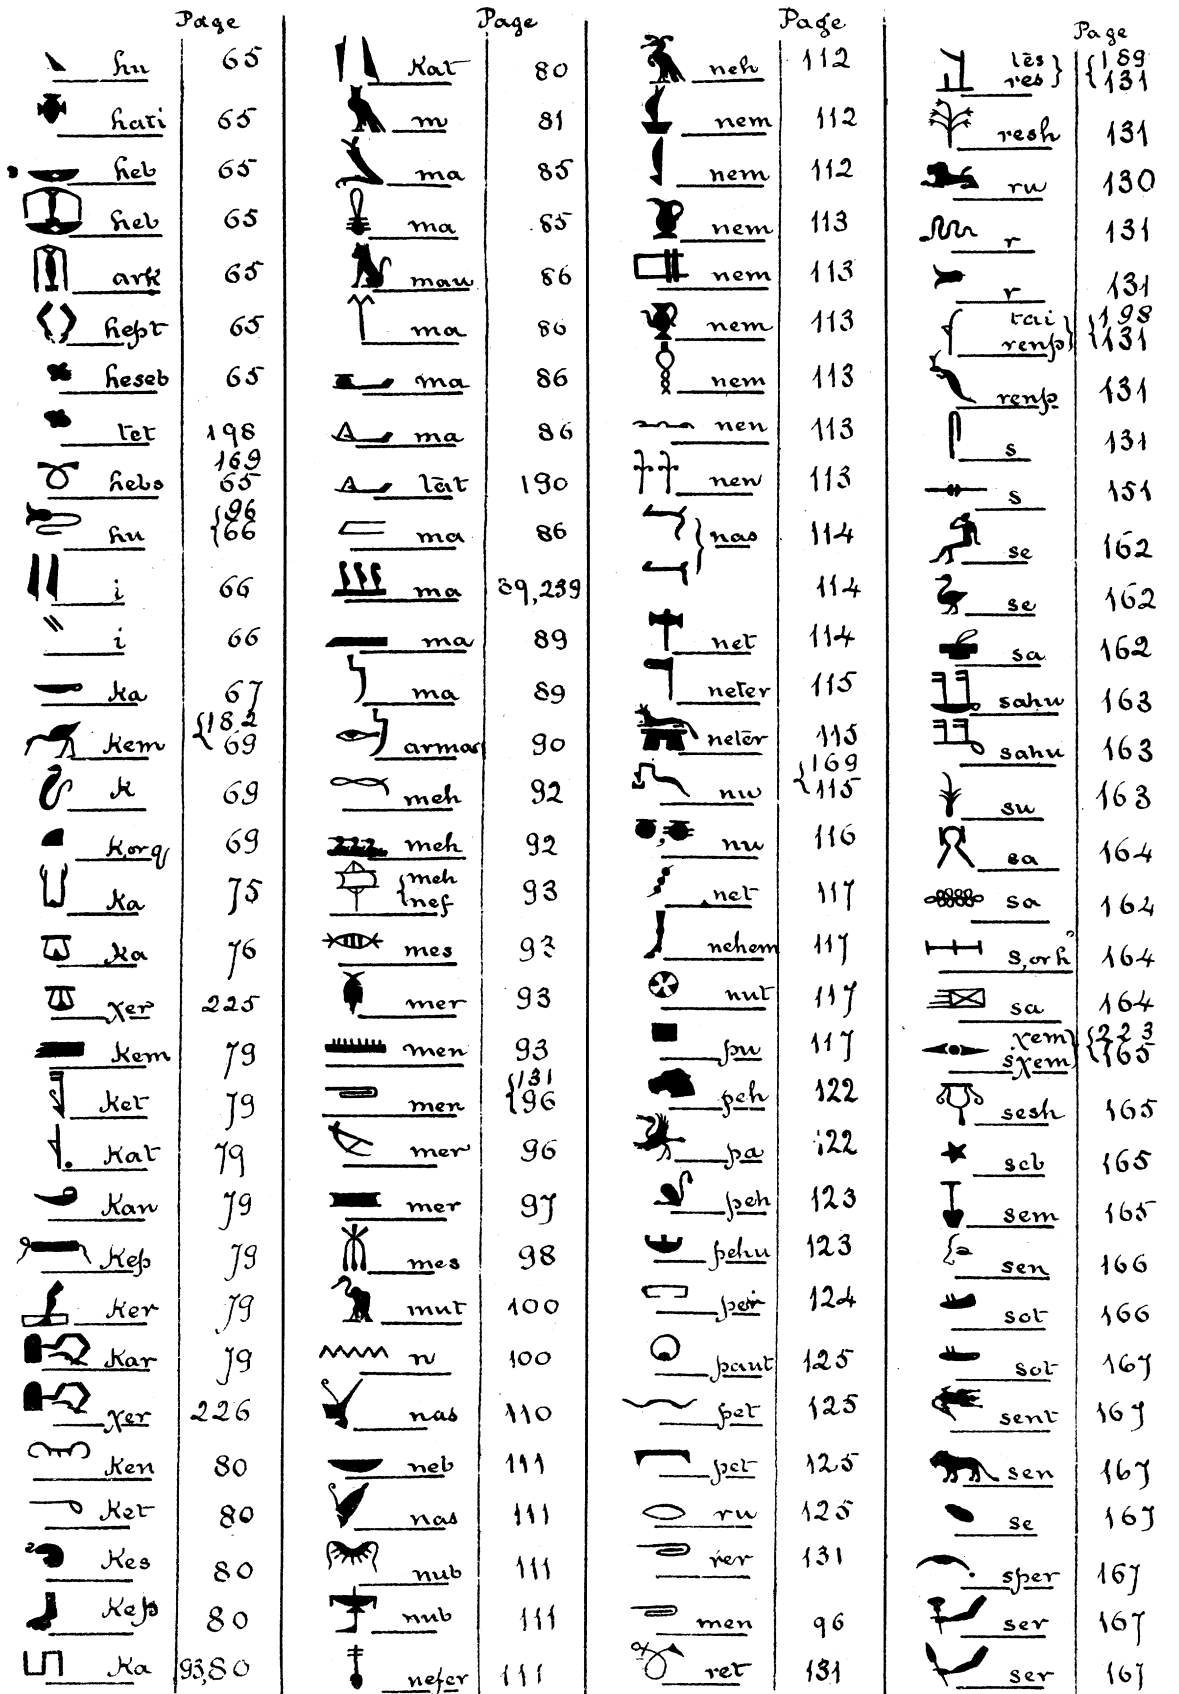 Page
hu 65
hati 65
heb 65
heb 65
ark 65
hept 65
heseb 65
tet 198
hebs 169 65
hu {96 66
i 66
i 66
ka 67
kem {182 69
k 69
k, or q 69
ka 75
ka 76
χer 225
kem 79
ket 79
kat 79
kan 79
kep 79
ker 79
kar 79
χer 226
ken 80
ket 80
kes 80
kep 80
ka 93,80
Page
kat 80
m 81
ma 85
ma 85
mau 86
ma 86
ma 86
ma 86
tāt 190
ma 86
ma 89,239
ma 89
ma 89
armas 90
meh 92
meh 92
{meh nef 93
mes 93
mer 93
men 93
men {131 96
mer 96
mer 97
mes 98
mut 100
n 100
nas 110
neb 111
nas 111
nub 111
nub 111
nefer 111
Page
neh 112
nem 112
nem 112
nem 113
nem 113
nem 113
nem 113
nen 113
nen 113
} nas 114
114
net 114
neter 115
netēr 115
nu {169 115
nu 116
net 117
nehem 117
nut 117
pu 117
peh 122
pa 122
peh 123
pehu 123
per 124
paut 125
pet 125
pet 125
ru 125
rer 131
men 96
ret 131
Page
tēs } {189
res } {131
resh 131
ru 130
r 131
r 131
tai } {198
renp } {131
renp 131
s 131
s 151
se 162
se 162
sa 162
sahu 163
sahu 163
su 163
sa 164
sa 164
s, or h 164
sa 164
χem } {223
sχem } {165
sesh 165
seb 165
sem 165
sen 166
sot 166
sot 167
sent 167
sen 167
se 167
sper 167
ser 167
ser 167